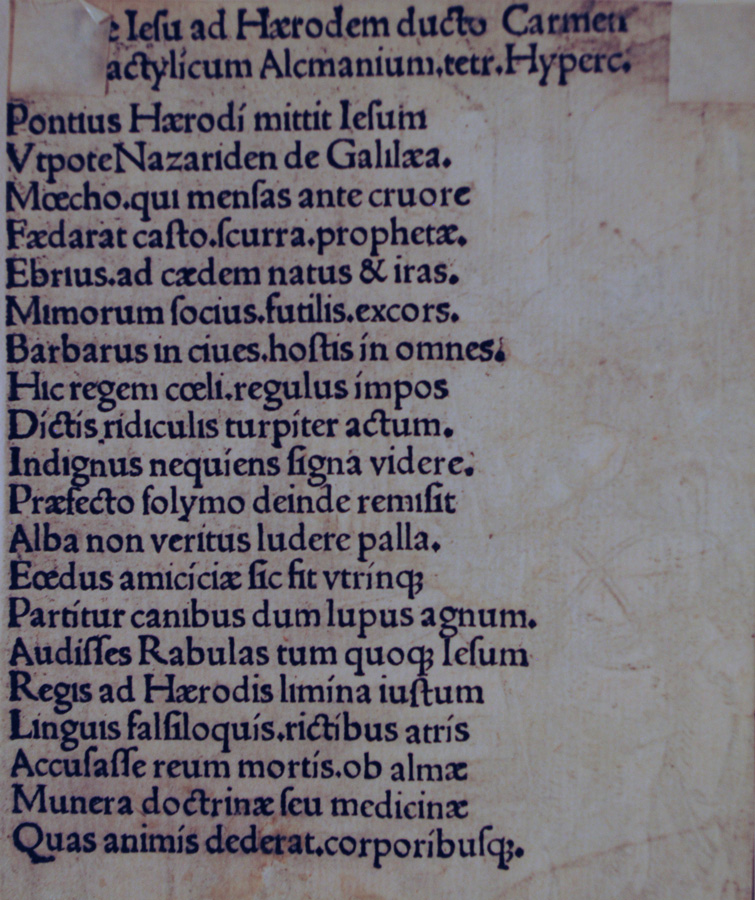 e Iesu ad Hærodem ducto Carmen
actylicum Alcmanium.tetr.Hyperc.
Pontius Hærodí mittit Iesum
VtpoteNazariden de Galilæa.
Mœcho.qui mensas ante cruore
Fædarat casto.scurra.prophetæ.
Ebrius.ad cædem natus & iras.
Mimorum socius.futilis.excors.
Barbarus in ciues.hostis ín omnes.
Hic regem cœli.regulus ímpos
Díctís ridiculis turpíter actum.
Indignus nequíens signa videre.
Præfecto solymo deinde remisit
Alba non verítus ludere palla.
Fœdus amicíciæ sic fit vtrínqꝫ
Partítur canibus dum lupus agnum.
Audisses Rabulas tum quoqꝫ Iesum
Regis ad Hærodis limína iustum
Linguis falsiloquís.rictibus atrís
Accusasse reum mortís.ob almæ
Munera doctrinæ seu medicinæ
Quas animís dederat.corporíbusqꝫ.